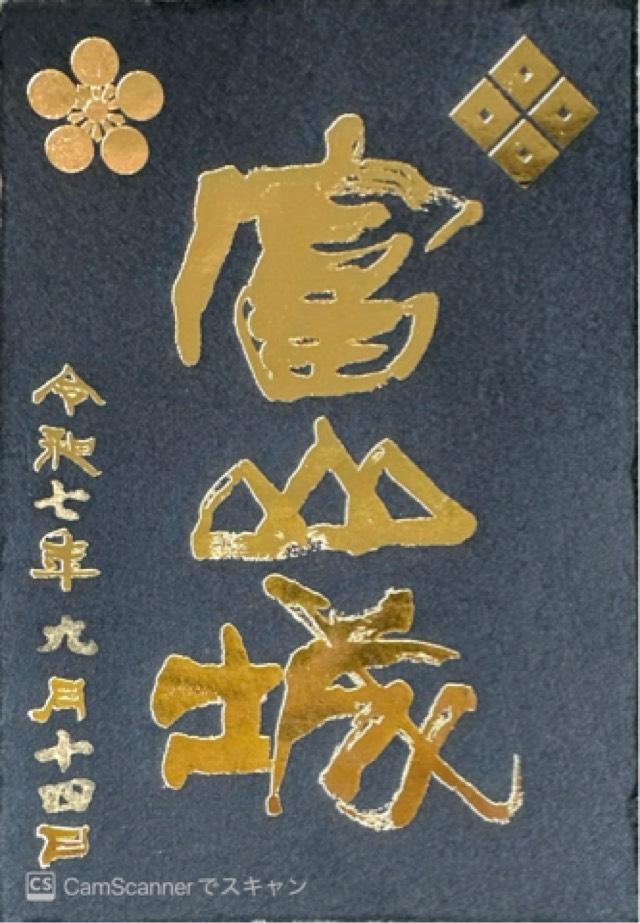 富山城
令和七年九月十四日
CS CamScannerでスキャン